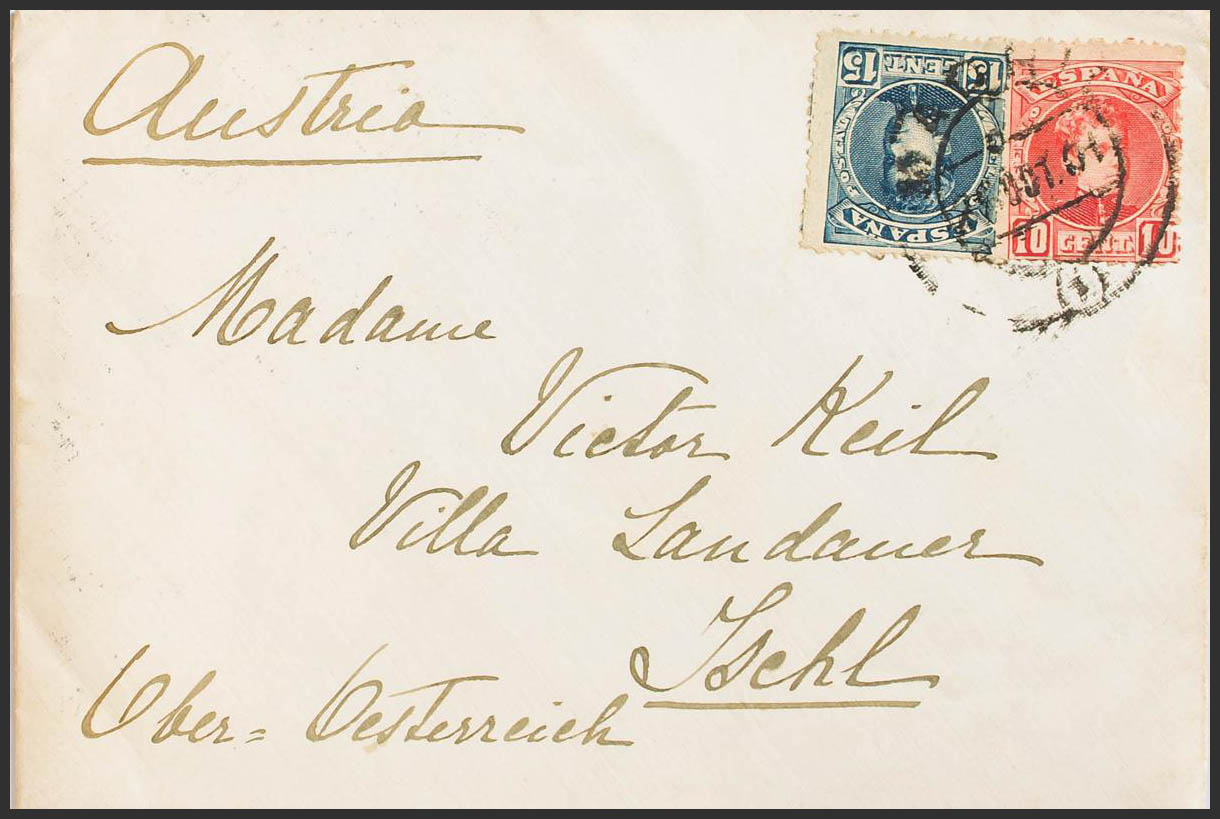 Austria
15 CENT 15
POSTAL
ESPAÑA
ESPAÑA
10 CENT. 10
OCT.
1
Madame
Victor Keil
Villa Landauer
Ischl
Ober= Oesterreich